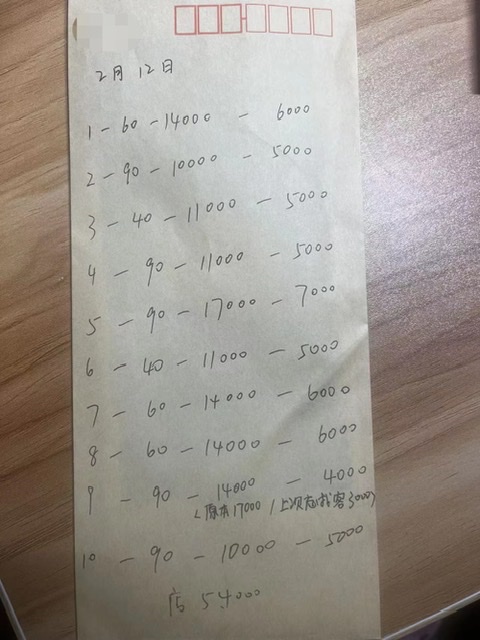 2月12日
1 - 60 - 14000 - 6000
2 - 90 - 10000 - 5000
3 - 40 - 11000 - 5000
4 - 90 - 11000 - 5000
5 - 90 - 17000 - 7000
6 - 40 - 11000 - 5000
7 - 60 - 14000 - 6000
8 - 60 - 14000 - 6000
9 - 90 - 14000 - 4000
(原本17000 / 上次 客3000)
10 - 90 - 10000 - 5000
店 54000